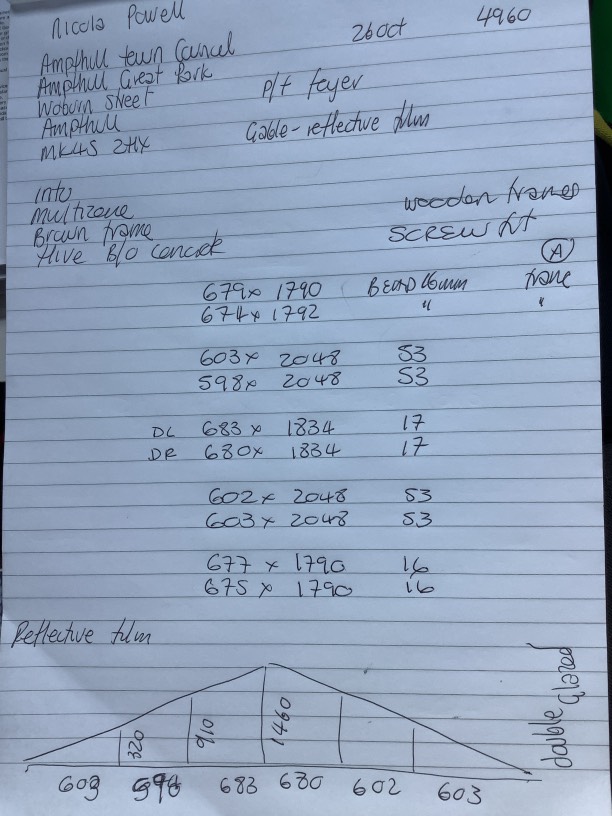 Nicola Powell 26 Oct 4960
Ampthill town Council
Ampthill Great Park
Woburn Street P/f foyer
Ampthill Gable - reflective film
MK45 2HX
into
multizone wooden frames
Brown frame SCREW fit
Hive B/O Ⓐ
679 x 1790 BEAD 16mm frame
674 x 1792 "  "
603 x 2048 53
598 x 2048 53
DL 683 x 1834 17
DR 680 x 1834 17
602 x 2048 53
603 x 2048 53
677 x 1790 16
675 x 1790 16
Reflective film
double glazed
320 910 1460
603 598 683 680 602 603